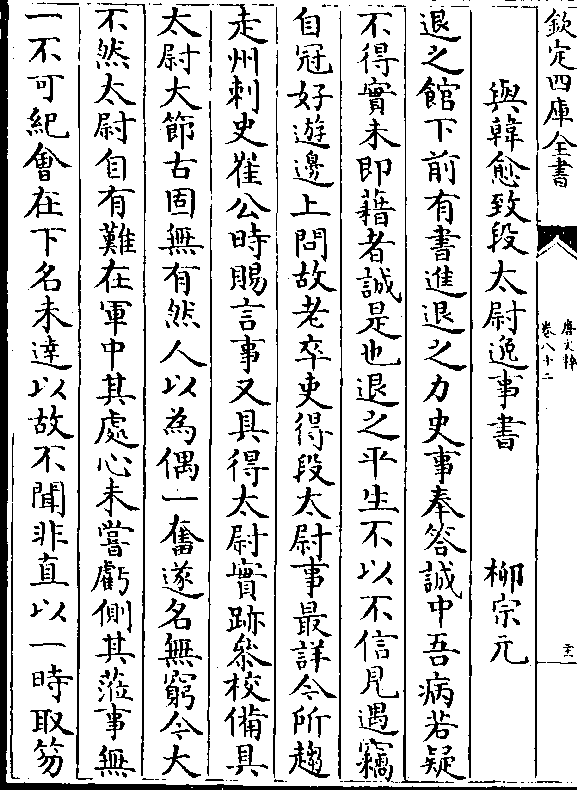 欽定四庫全書
唐文粹
卷八十二
與韓愈致段太尉逸事書　柳宗元
退之館下前有書進退之力史事奉答誠中吾病若疑
不得實未即藉者誠是也退之平生不以不信見遇竊
自冠好遊邊上問故老卒吏得段太尉事最詳今所趨
走州刺史崔公時賜言事又具得太尉實跡叅校備具
太尉大節古固無有然人以為偶一奮遂名無窮今大
不然太尉自有難在軍中其處心未嘗虧側其蒞事無
一不可紀會在下名未達以故不聞非直以一時取笏